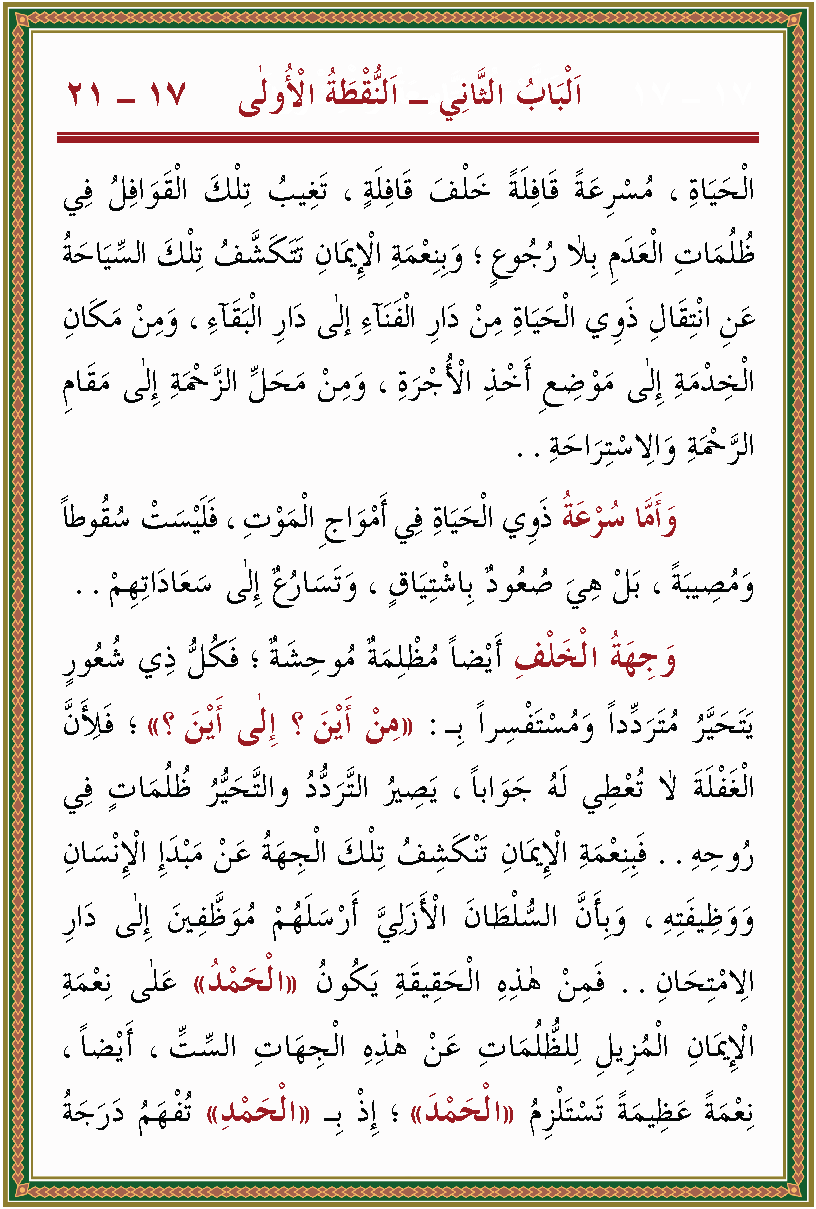 اَلْبَابُ الثَّانِي ــ اَلنُّقْطَةُ الْأُولٰى ١٧ ــ ٢١
الْحَيَاةِ ، مُسْرِعَةً قَافِلَةً خَلْفَ قَافِلَةٍ ، تَغِيبُ تِلْكَ الْقَوَافِلُ فِي
ظُلُمَاتِ الْعَدَمِ بِلاٰ رُجُوعٍ ؛ وَبِنِعْمَةِ الْإِيمَانِ تَتَكَشَّفُ تِلْكَ السِّيَاحَةُ
عَنِ انْتِقَالِ ذَوِي الْحَيَاةِ مِنْ دَارِ الْفَنَآءِ إلٰى دَارِ الْبَقَآءِ ، وَمِنْ مَكَانِ
الْخِدْمَةِ إِلٰى مَوْضِعِ أَخْذِ الْأُجْرَةِ ، وَمِنْ مَحَلِّ الزَّحْمَةِ إِلٰى مَقَامِ
الرَّحْمَةِ وَالِاسْتِرَاحَةِ . .
وَأَمَّا سُرْعَةُ ذَوِي الْحَيَاةِ فِي أَمْوَاجِ الْمَوْتِ ، فَلَيْسَتْ سُقُوطاً
وَمُصِيبَةً ، بَلْ هِيَ صُعُودٌ بِاشْتِيَاقٍ ، وَتَسَارُعٌ إِلٰى سَعَادَاتِهِمْ . .
وَجِهَةُ الْخَلْفِ أَيْضاً مُظْلِمَةٌ مُوحِشَةٌ ؛ فَكُلُّ ذِي شُعُورٍ
يَتَحَيَّرُ مُتَرَدِّداً وَمُسْتَفْسِراً بِـ : «مِنْ أَيْنَ ؟ إِلٰى أَيْنَ ؟» ؛ فَلِأَنَّ
الْغَفْلَةَ لاٰ تُعْطِي لَهُ جَوَاباً ، يَصِيرُ التَّرَدُّدُ والتَّحَيُّرُ ظُلُمَاتٍ فِي
رُوحِهِ . . فَبِنِعْمَةِ الْإِيمَانِ تَنْكَشِفُ تِلْكَ الْجِهَةُ عَنْ مَبْدَإِ الْإِنْسَانِ
وَوَظِيفَتِهِ ، وَبِأَنَّ السُّلْطَانَ الْأَزَلِيَّ أَرْسَلَهُمْ مُوَظَّفِينَ إِلٰى دَارِ
الِامْتِحَانِ . . فَمِنْ هٰذِهِ الْحَقِيقَةِ يَكُونُ «الْحَمْدُ» عَلٰى نِعْمَةِ
الْإِيمَانِ الْمُزِيلِ لِلظُّلُمَاتِ عَنْ هٰذِهِ الْجِهَاتِ السِّتِّ ، أَيْضاً ،
نِعْمَةً عَظِيمَةً تَسْتَلْزِمُ «الْحَمْدَ» ؛ إِذْ بِـ «الْحَمْدِ» تُفْهَمُ دَرَجَةُ